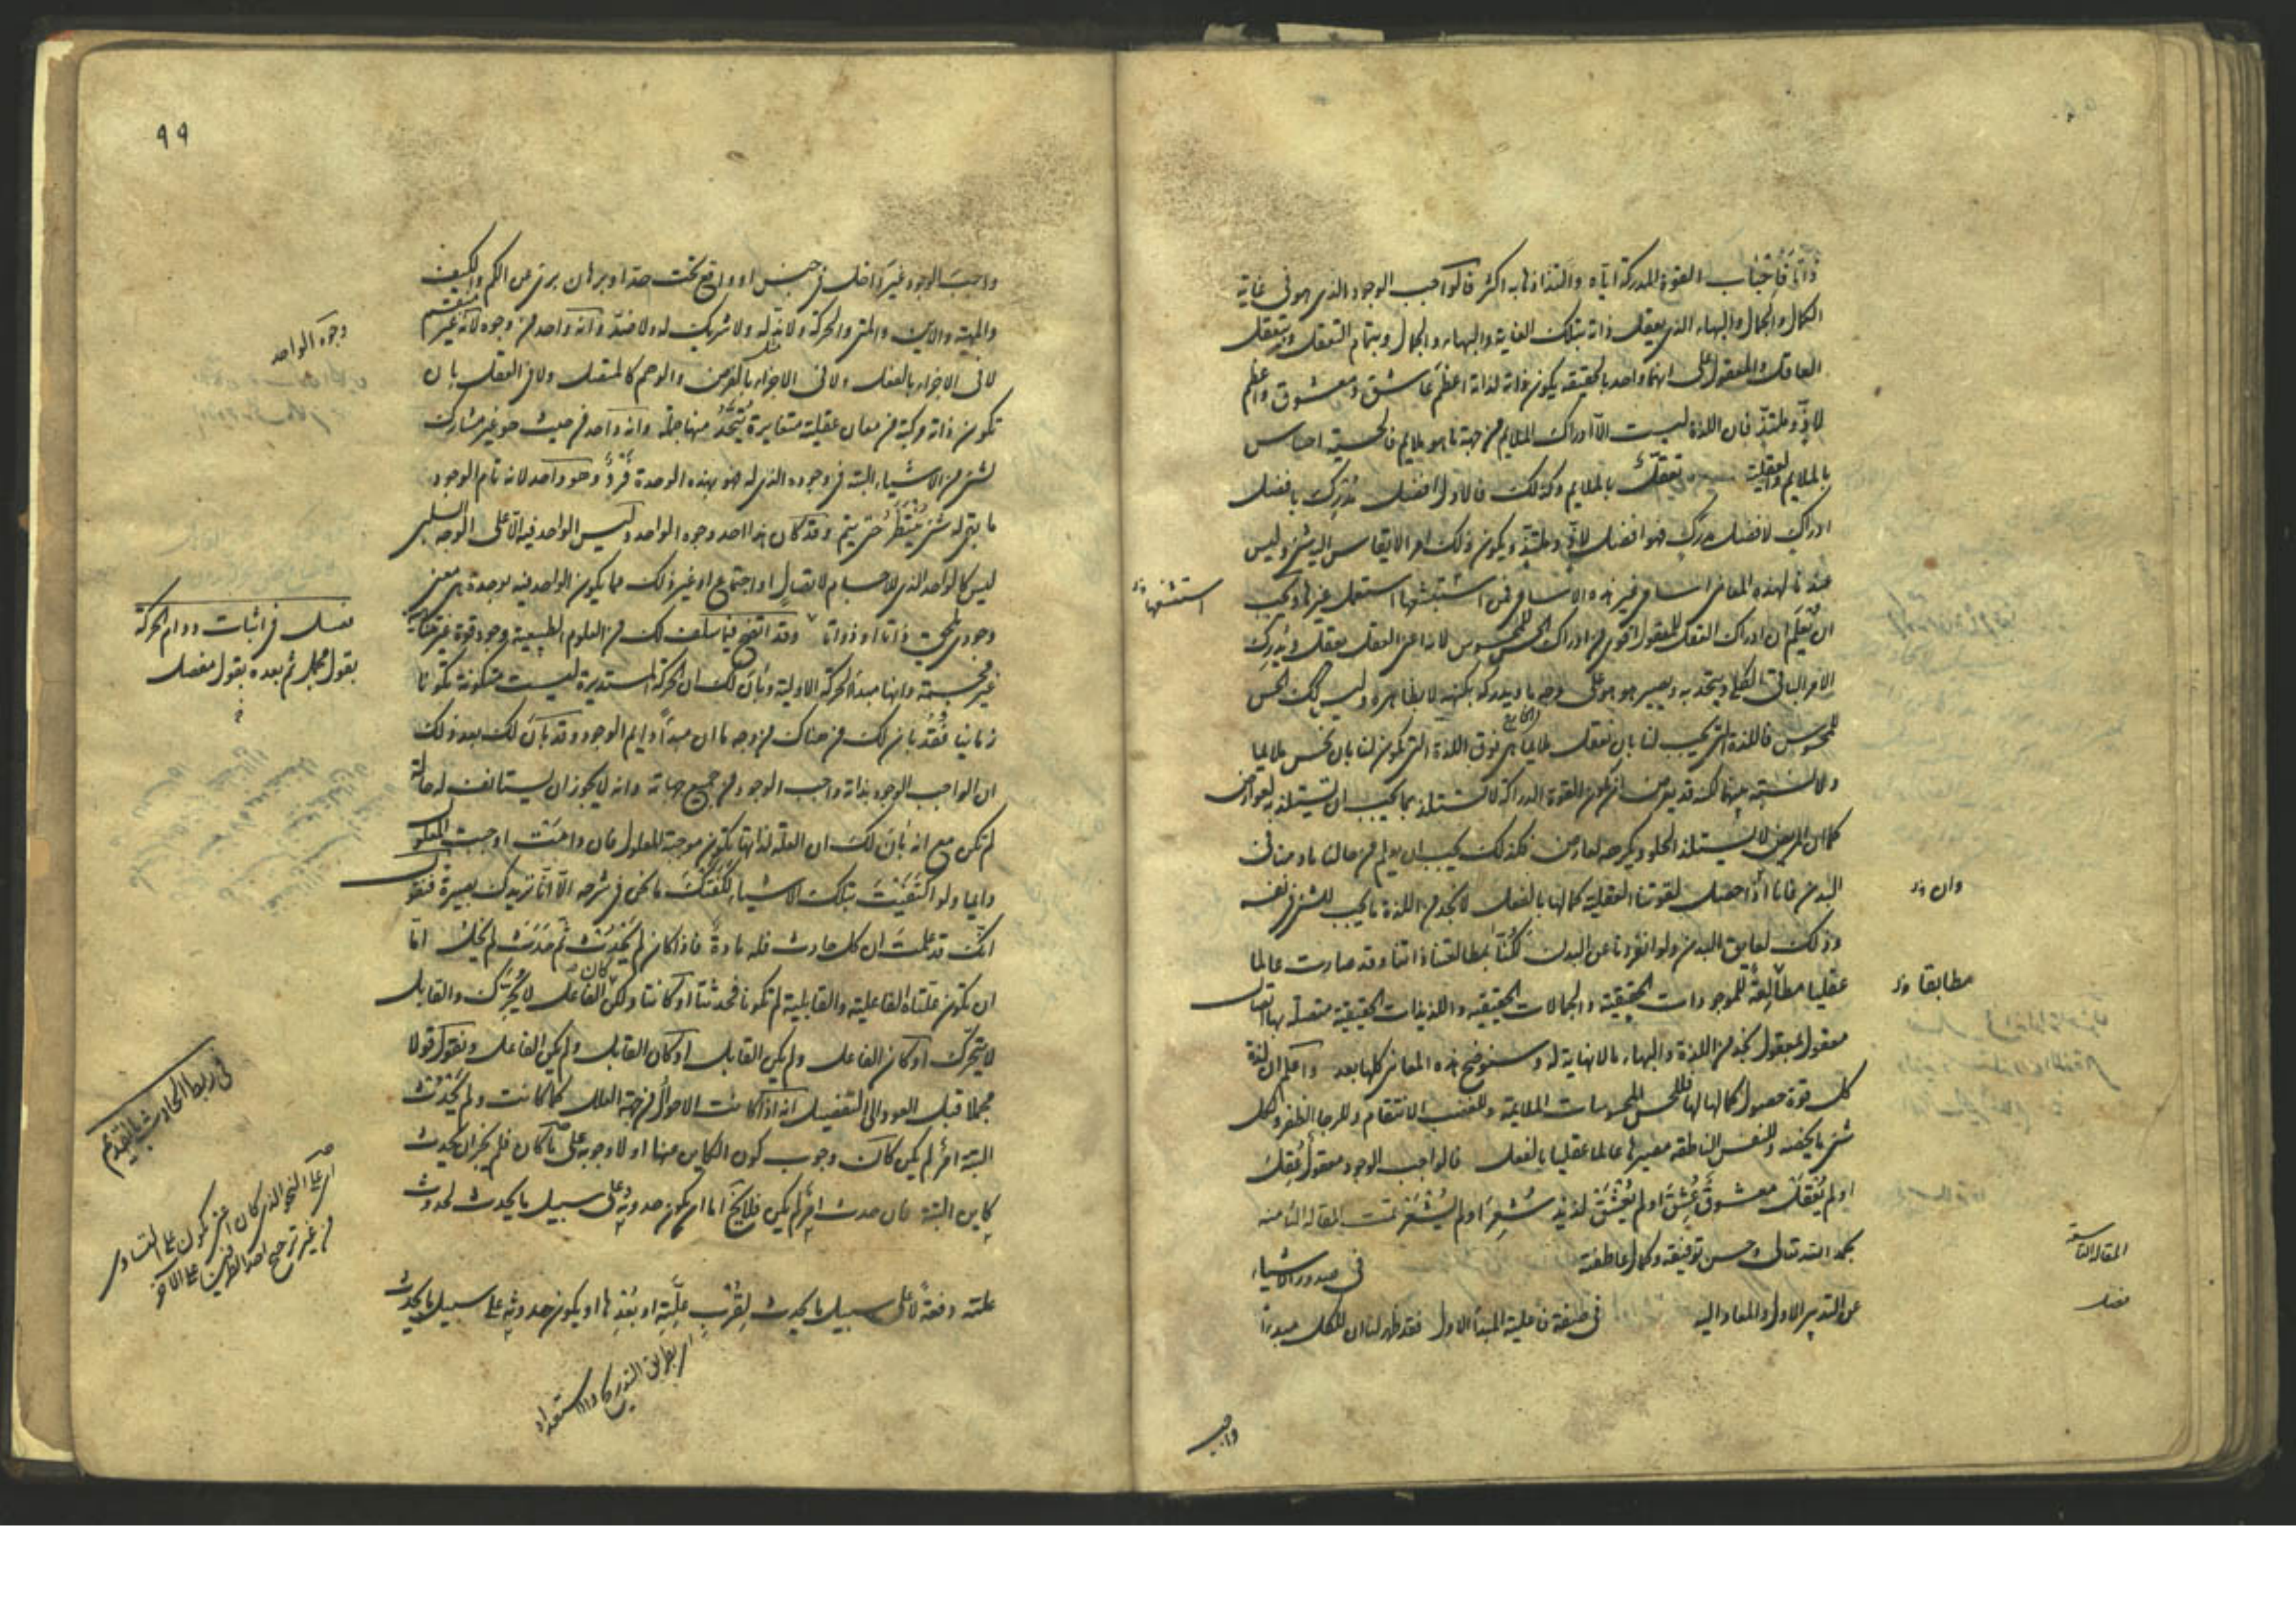 ذاتا فاحباب القوة المدركة اياه والتذاذها به اكثر فالواجب الوجود الذى هو فى غاية
الكمال والجمال والبهاء الذى يعقل ذاته بتلك الغاية والبهاء والجمال وبتمام التعقل وبتعقل
العاقل والمعقول على انهما واحد بالحقيقة يكون ذاته لذاته اعظم عاشق ومعشوق واعظم
لاذ وملتذ فان اللذة ليست الا ادراك الملايم من جهة ما هو ملايم فالحسية احساس
بالملايم والعقلية تعقل بالملايم وكذلك فالاول افضل مدرك بافضل
ادراك لافضل مدرك فهو افضل لاذ وملتذ ويكون ذلك امرا لا يقاس اليه شئ وليس
عندنا لهذه المعانى اسامى غير هذه الاسامى فمن استبشعها استعمل غيرها ويجب
استشنعها
ان تعلم ان ادراك العقل للمعقول اقوى من ادراك الحس للمحسوس لانه اعنى العقل يعقل ويدرك
الامر الباقى الكلى ويتحد به ويصير هو هو على وجه ما ويدركه بكنهه لا بظاهره وليس كذلك الحس
للمحسوس فاللذة التى تجب لنا بان نعقل ملايما هى فوق اللذة التى تكون لنا بان نحس ملايما
ولا نسبة بينهما لكنه قد يعرض ان تكون القوة الدراكة لا تستلذ بما يجب ان تستلذ به لعوارض
كما ان المريض لا يستلذ الحلو ويكرهه لعارض فكذلك يجب ان يعلم من حالنا ما دمنا فى
البدن فانا اذا حصل لقوتنا العقلية كمالها بالفعل لا نجد من اللذة ما يجب للشئ فى نفسه
وان
وذلك لعايق البدن ولو انفردنا عن البدن لكنا بمطالعتنا ذاتنا وقد صارت عالما
عقليا مطالعة للموجودات الحقيقية والجمالات الحقيقية واللذيذات الحقيقية متصلة بها اتصال
مطابقا
معقول بمعقول نجد من اللذة والبهاء ما لا نهاية له وسنوضح هذه المعانى كلها بعد واعلم ان لذة
كل قوة حصول كمالها لها فللحس المحسوسات الملايمة وللغضب الانتقام وللرجا الظفر ولكل
شئ ما يخصه وللنفس الناطقة مصيرها عالما عقليا بالفعل فالواجب الوجود معقول عقل
او لم يعقل معشوق عشق او لم يعشق لذيذ شعر او لم يشعر تمت المقالة الثامنة
بحمد الله تعالى وحسن توفيقه وكمال عاطفته فى صدور الاشياء
المقالة التاسعة
عن التدبير الاول والمعاد اليه فى صفة فاعلية المبدأ الاول فقد ظهر لنا ان للكل مبدأ
فصل
واجب
٩٩
واجب الوجود غير داخل فى جنس او واقع تحت حد او برهان برى عن الكم والكيف
والمهية والاين والمتى والحركة ولا ند له ولا شريك له ولا ضد وانه واحد من وجوه لانه غير منقسم
وجوه الواحد
لا فى الاجزاء بالفعل ولا فى الاجزاء بالفرض والوهم كالمتصل ولا فى العقل بان
تكون ذاته مركبة من معان عقلية متغايرة تتحد منها جملة وانه واحد من حيث هو غير مشارك
لشئ من الاشياء البتة فى وجوده الذى له فهو بهذه الوحدة فرد وهو واحد لانه تام الوجود
ما بقى له شئ ينتظر حتى يتم وقد كان هذا احد وجوه الواحد وليس الواحد فيه الا على الوجه السلبى
ليس كالواحد الذى للاجسام لاتصال او اجتماع او غير ذلك مما يكون الواحد فيه بوحدة هى معنى
وجودى يلحق ذاتا او ذواتا وقد اتضح فيما سلف لك من العلوم الطبيعية وجود قوة غير متناهية
فصل فى اثبات دوام الحركة
بقول مجمل ثم بعده بقول مفصل
غير مجسمة وانها مبدأ الحركة الاولية وبان لك ان الحركة المستديرة ليست متكونة تكونا
زمانيا فقد بان لك من هناك من وجه ما ان مبدأ دايم الوجود وقد بان لك بعد ذلك
ان الواجب الوجود بذاته واجب الوجود من جميع جهاته وانه لا يجوز ان يستانف له حالة
لم تكن مع انه بان لك ان العلة لذاتها تكون موجبة المعلول فان دامت اوجبت المعلول
دايما ولو اكتفيت بتلك الاشياء لكفتك ما نحن فى شرحه الا انا نزيدك بصيرة فنقول
انك قد علمت ان كل حادث فله مادة فاذا كان لم يحدث ثم حدث لم يخل اما
ان تكون علتاه الفاعلية والقابلية لم تكونا فحدثتا او كانتا ولكن كان الفاعل لا يحرك والقابل
لا يتحرك او كان الفاعل ولم يكن القابل او كان القابل ولم يكن الفاعل ونقول قولا
مجملا قبل العود الى التفصيل انه اذا كانت الاحوال من جهة العلل كما كانت ولم يحدث
فى ربط الحادث بالقديم
البتة امر لم يكن كان وجوب كون الكاين منها او لا وجوبه على ما كان فلم يجز ان يحدث
كاين البتة فان حدث امر لم يكن فلا يخ اما ان يكون حدوثه على سبيل ما يحدث لحدوث
اى على النحو الذى كان اعنى يكون على التساوى
من غير ترجيح احد الطرفين على الآخر
علته دفعة لا على سبيل ما يحدث لقرب علته او بعدها او يكون حدوثه على سبيل ما يحدث
اى بطريق التدريج والاستعداد